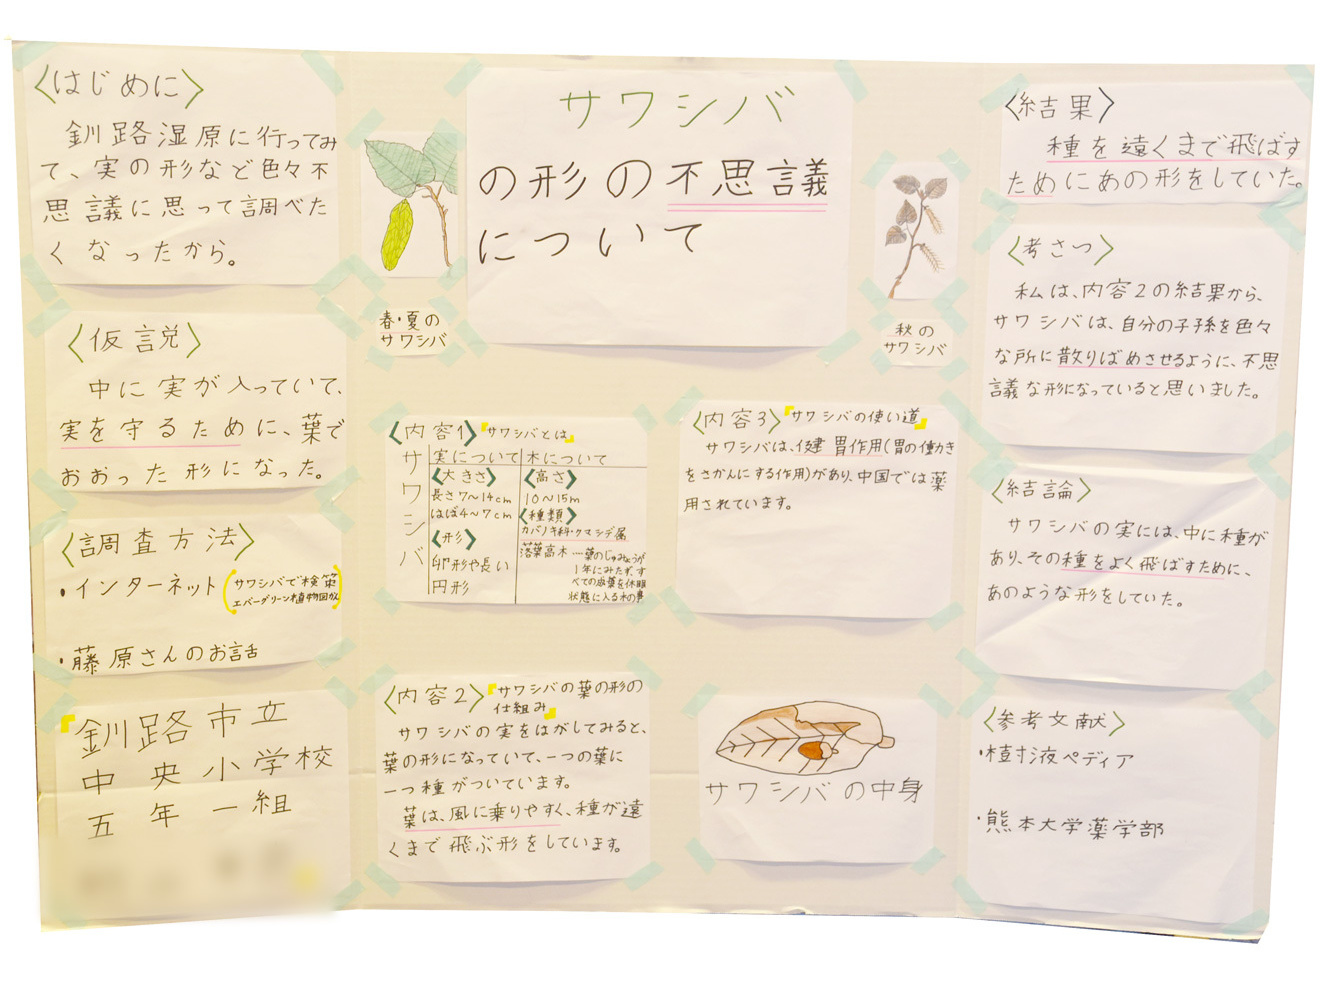 〈はじめに〉
釧路湿原に行ってみ
て、実の形など色々不
思議に思って調べた
くなったから。
〈仮説〉
中に実が入っていて、
実を守るために、葉で
おおった形になった。
〈調査方法〉
・インターネット(サワシバで検索
エバーグリーン植物図かん)
・藤原さんのお話
『釧路市立
中央小学校
五年一組
サワシバ
の形の不思議
について
春・夏の
サワシバ
秋の
サワシバ
〈内容1〉『サワシバとは』
サワシバ
実について
〈大きさ〉
長さ7〜14cm
はば4〜7cm
〈形〉
卵形や長い
円形
木について
〈高さ〉
10〜15m
〈種類〉
カバノキ科・クマシデ属
落葉高木…葉のじゅみょうが
1年にみたず、す
べての成葉を休眠
状態に入る木の事
〈内容2〉『サワシバの葉の形の
仕組み』
サワシバの実をはがしてみると、
葉の形になっていて、一つの葉に
一つ種がついています。
葉は、風に乗りやすく、種が遠
くまで飛ぶ形をしています。
〈内容3〉『サワシバの使い道』
サワシバは、健胃作用(胃の働き
をさかんにする作用)があり、中国では薬
用されています。
サワシバの中身
〈結果〉
種を遠くまで飛ばす
ためにあの形をしていた。
〈考さつ〉
私は、内容2の結果から、
サワシバは、自分の子孫を色々
な所に散りばめさせるように、不思
議な形になっていると思いました。
〈結論〉
サワシバの実には、中に種が
あり、その種をよく飛ばすために、
あのような形をしていた。
〈参考文献〉
・植村液ペディア
・熊本大学薬学部